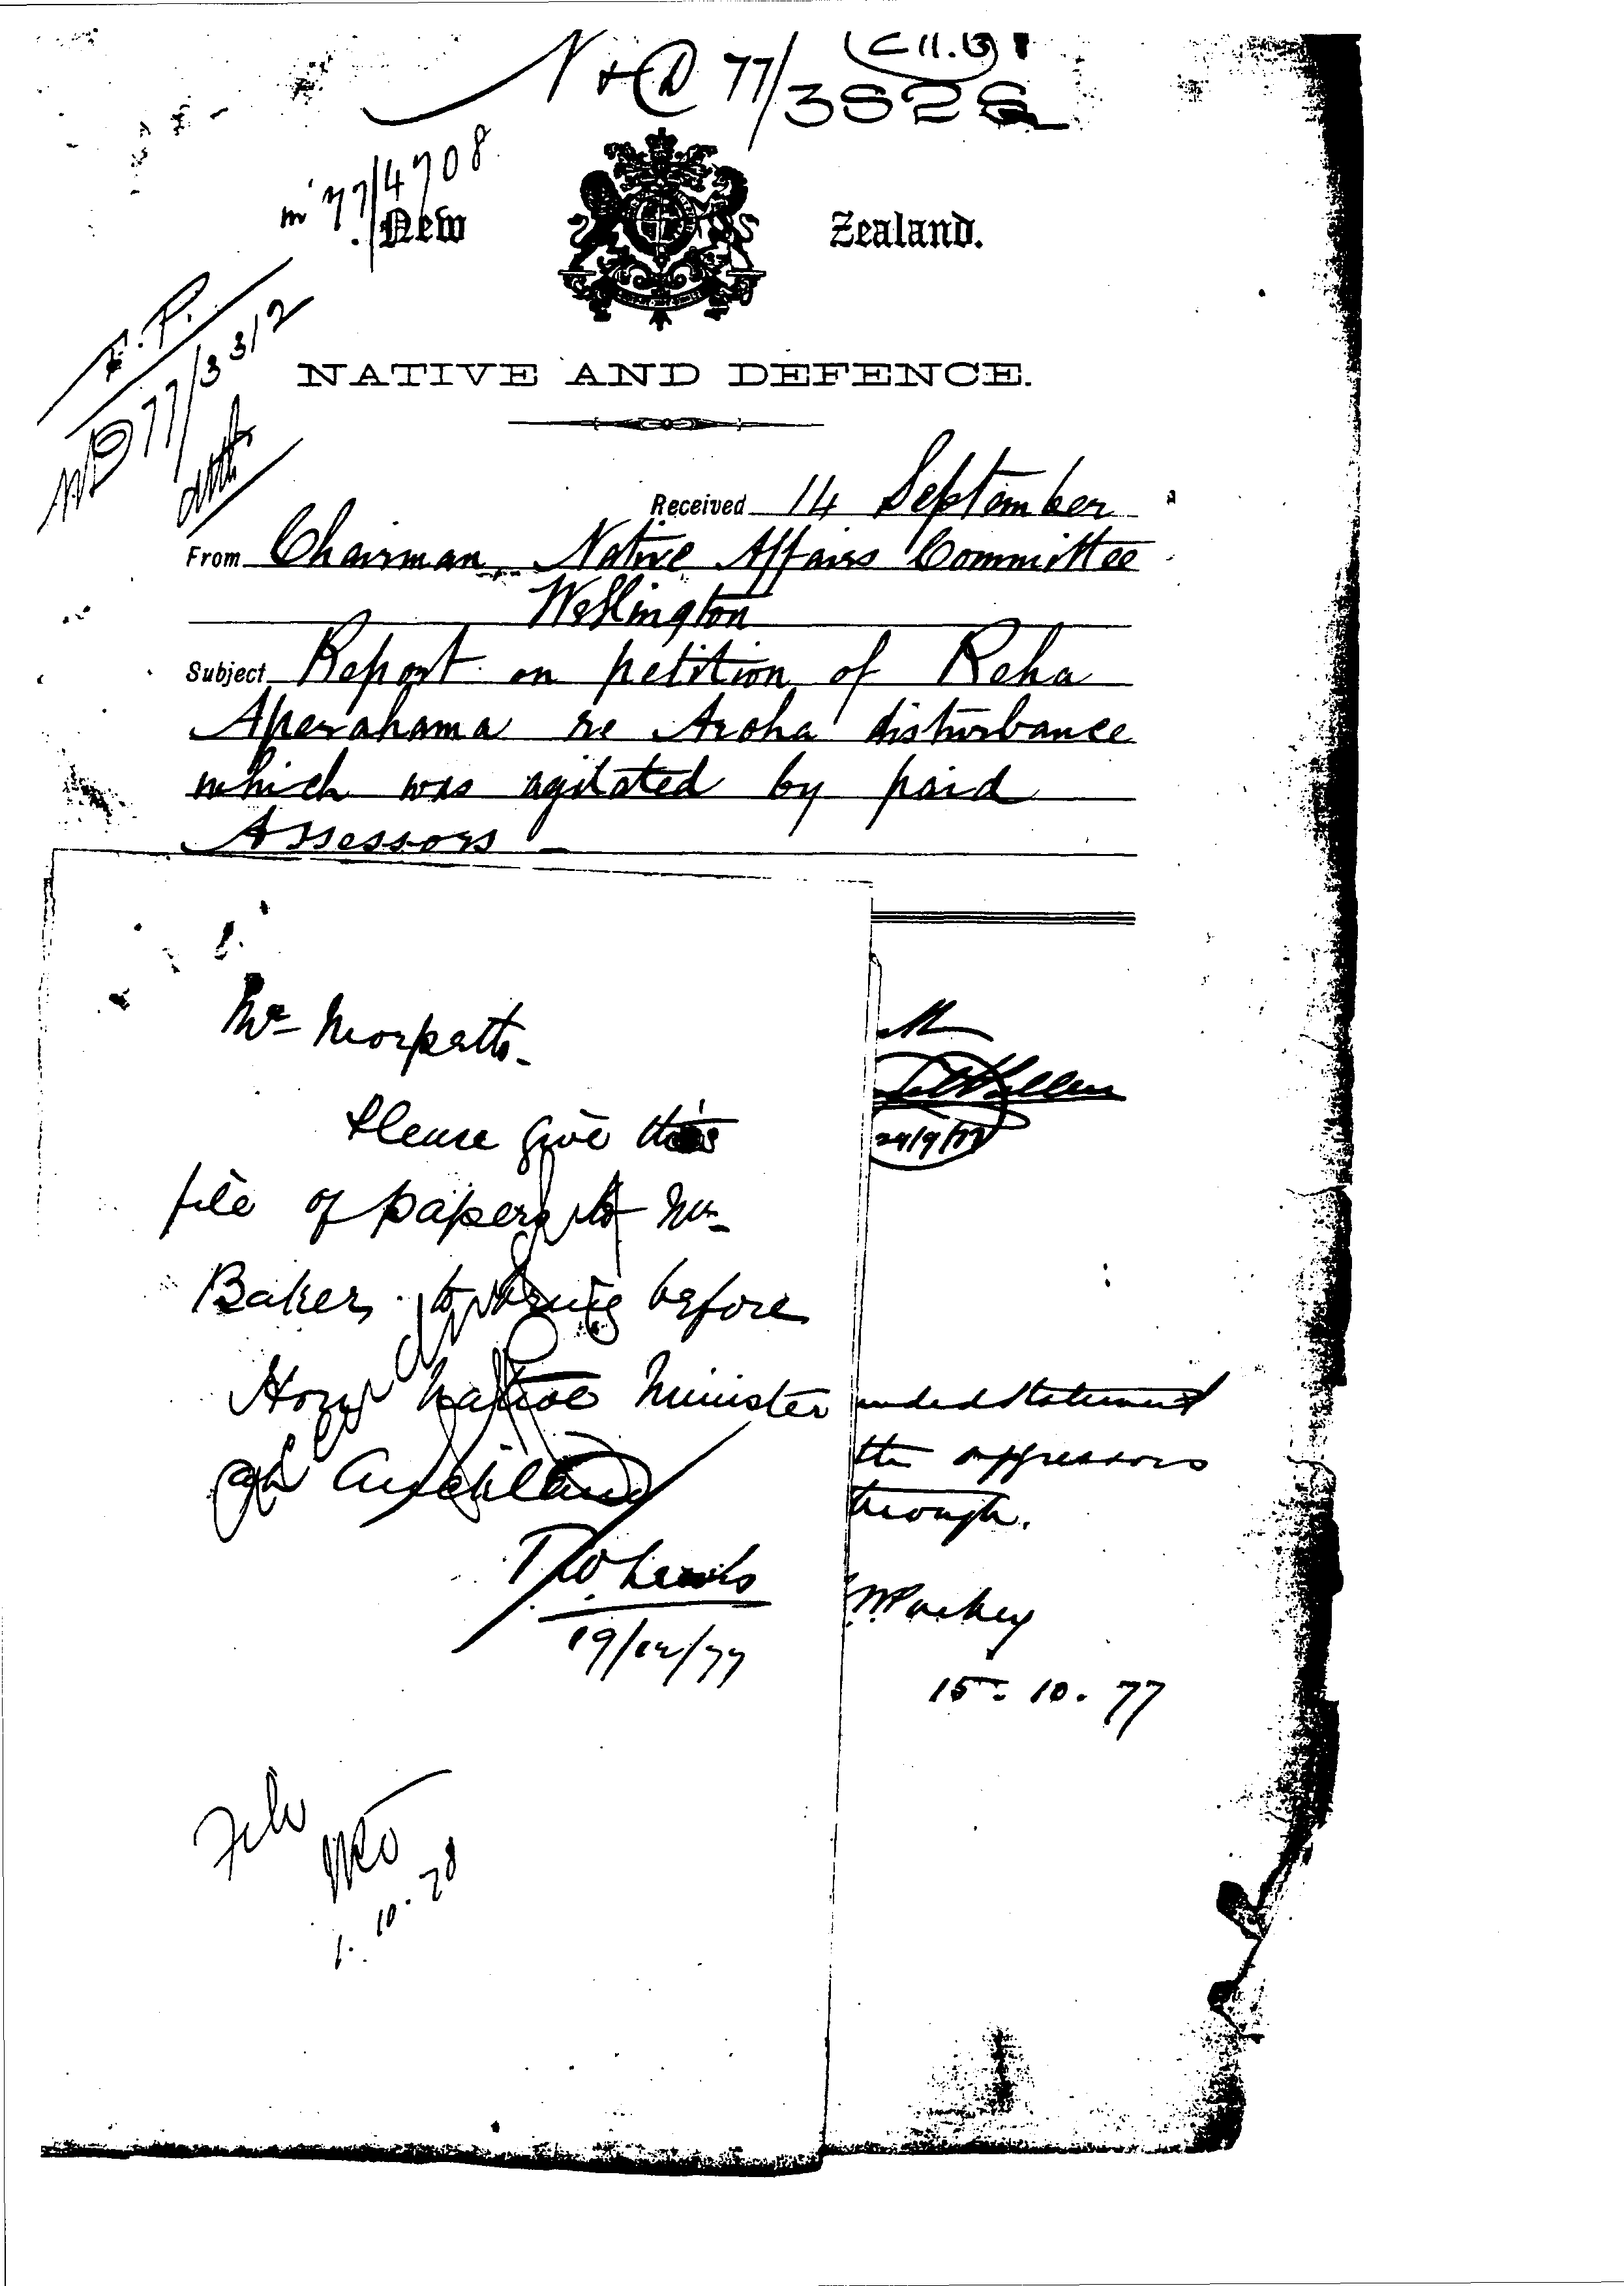 N & D 77/3826
77/4708
New Zealand.
F. P.
ND 77/3312
NATIVE AND DEFENCE.
Received 14 September
From Chairman Native Affairs Committee
Wellington
Subject Report on petition of Reha
Aperahama re Aroha disturbance
which was agitated by paid
Assessors
Mr Morpeth.
Please give this
file of papers to Mr
Baker, to bring before
Hon Native Minister
at Auckland
TW Lewis
19/12/77
24/9/77
statement
the oppressors
through.
15-10.77
File
1.10.78